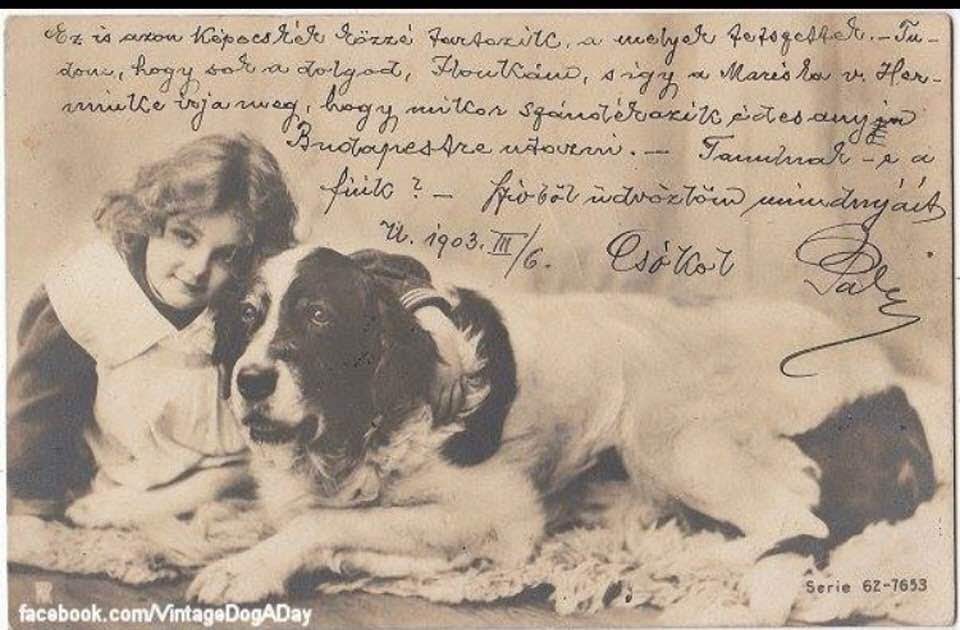 Ez is azon képecskék közzé tartozik, a melyek tetszettek. - Tu-
dom, hogy sok a dolgod, Ilonkám, s így a Mariska v. Her-
minke irja meg, hogy mikor szándékozik édes anyjin
Budapestre utazni. - Tanulnak-e a
fiúk? - Szivből üdvözlöm mindnyáját
1903. III/6. Csókol
Serie 62-7653
facebook.com/VintageDogADay